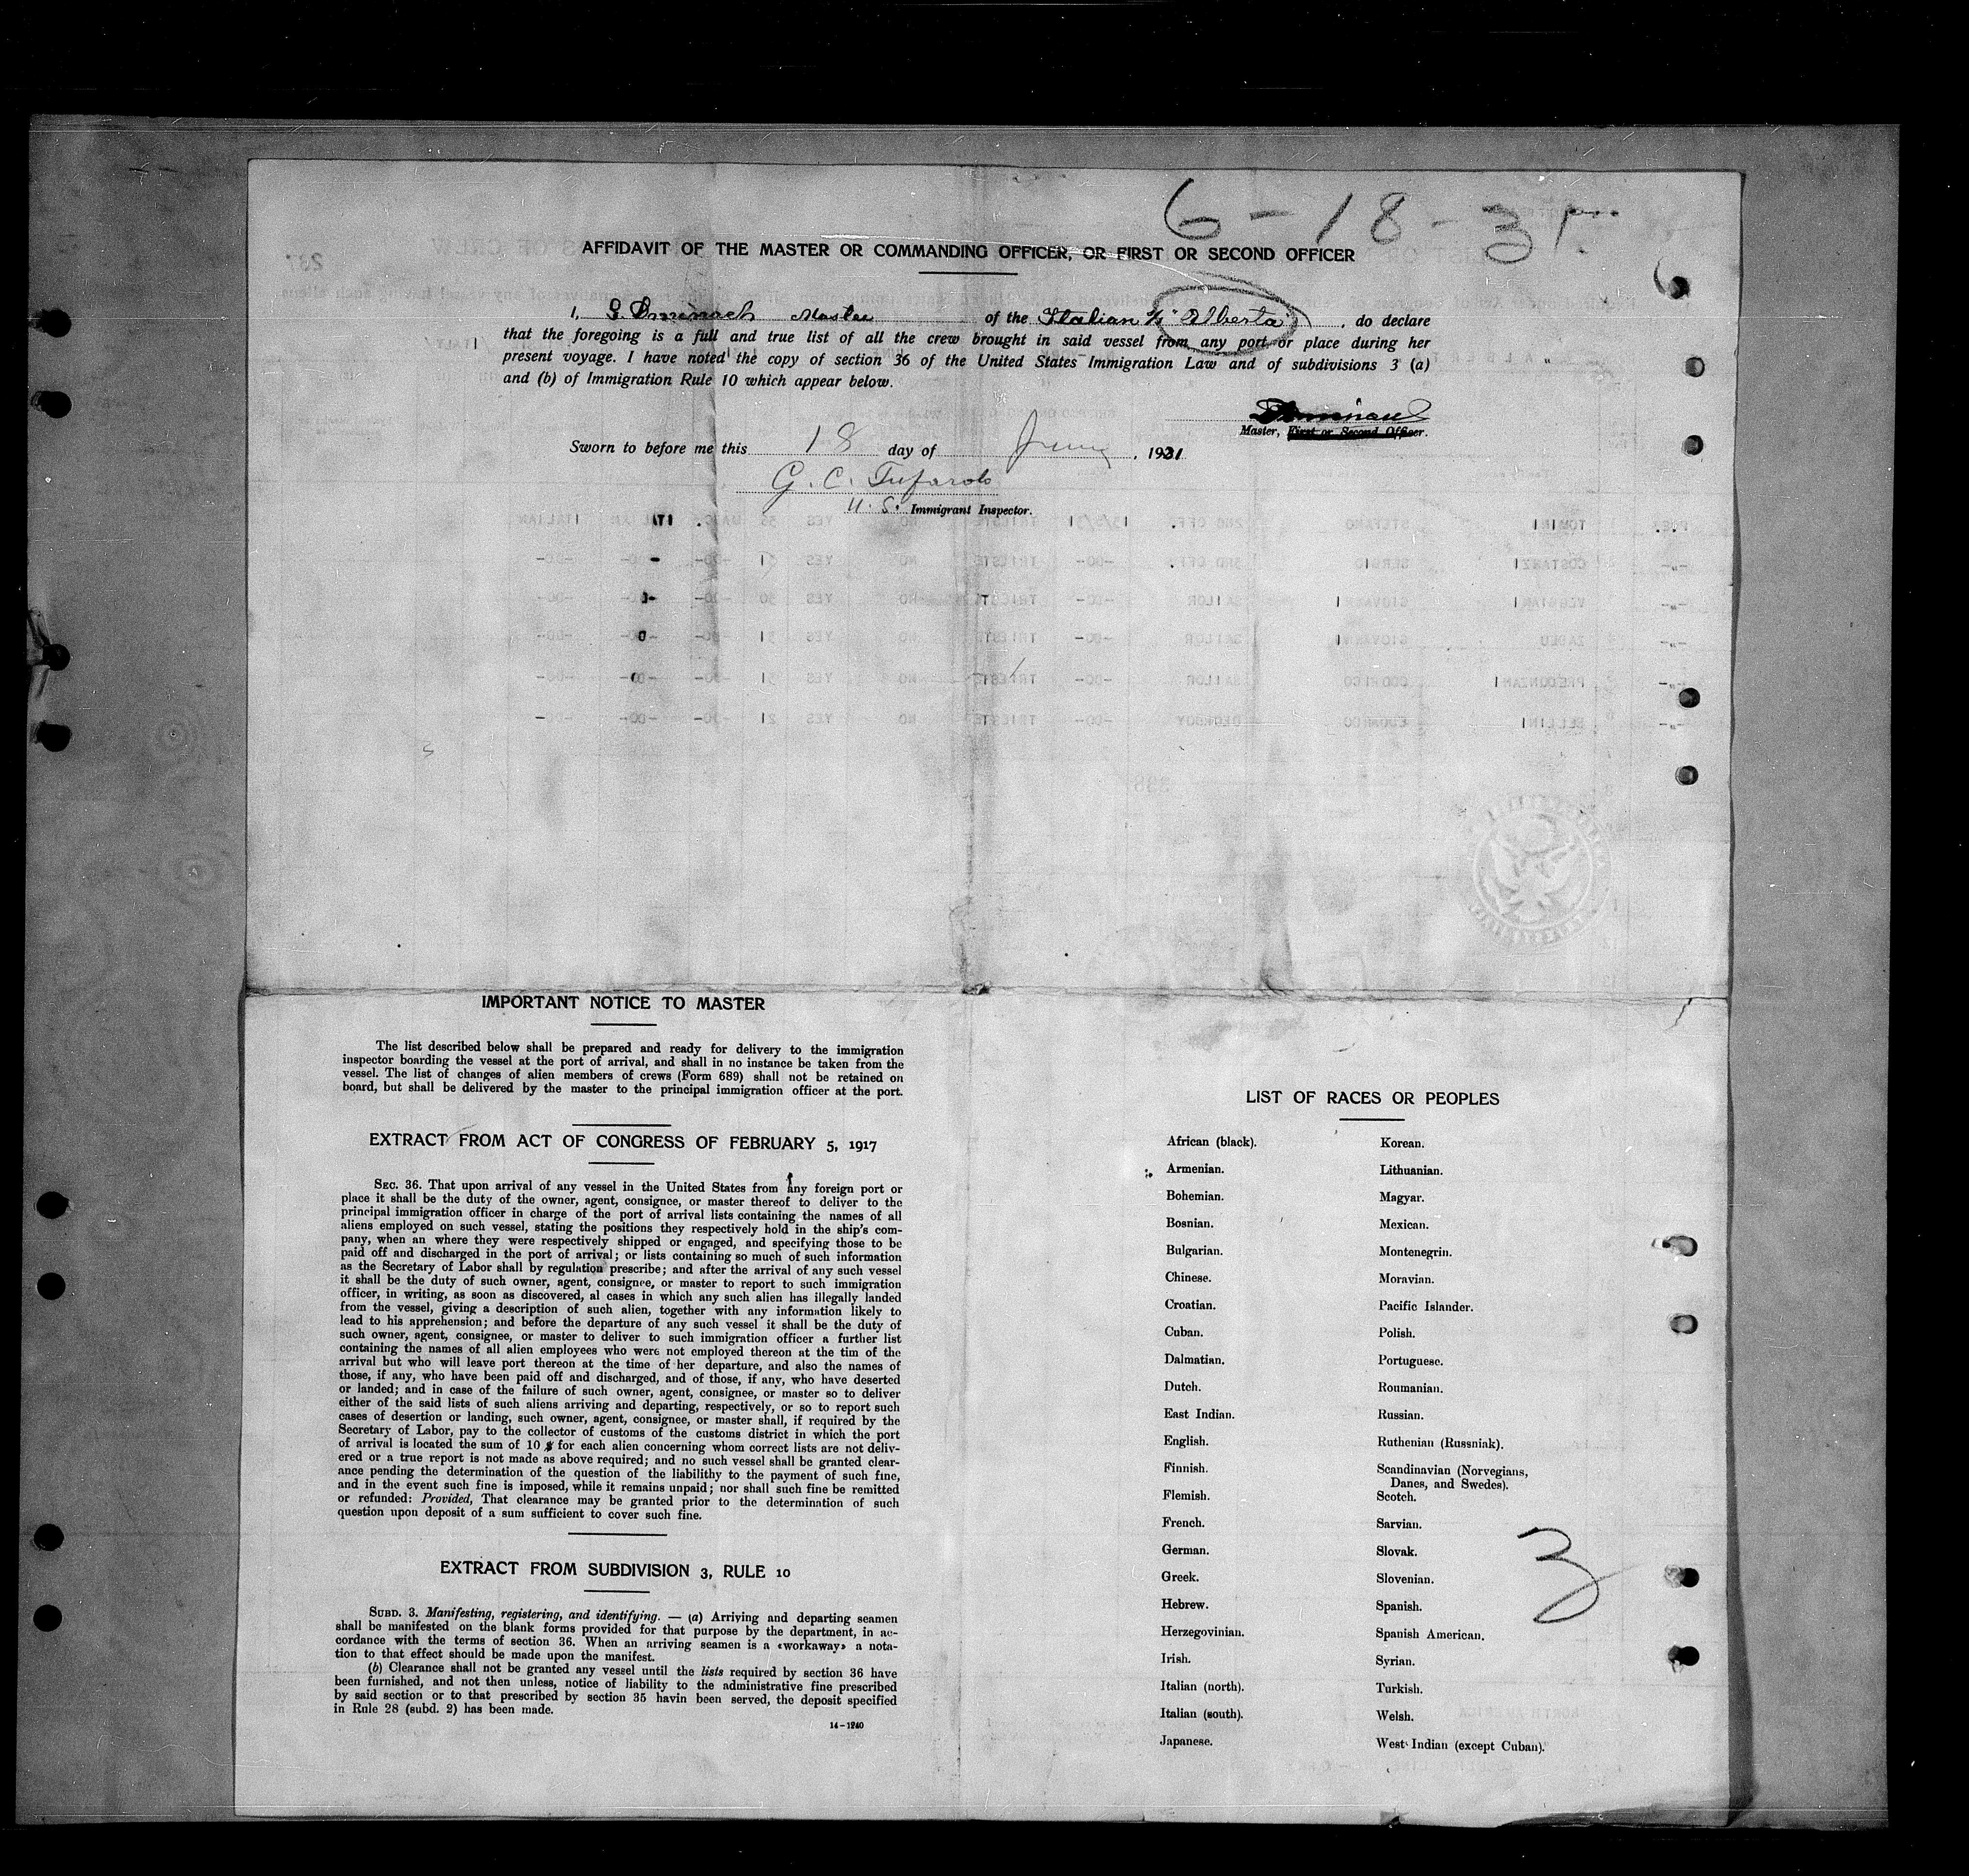 6 - 18 - 31.
AFFIDAVIT OF THE MASTER OR COMMANDING OFFICER, OR FIRST OR SECOND OFFICER
I, Master of the Italian S/S "Alberta", do declare
that the foregoing is a full and true list of all the crew brought in said vessel from any port or place during her
present voyage. I have noted the copy of section 36 of the United States Immigration Law and of subdivisions 3 (a)
and (b) of Immigration Rule 10 which appear below.
Master, First or Second Officer.
Sworn to before me this 18 day of June, 1931
G. C. Tufarolo
U. S. Immigrant Inspector.
IMPORTANT NOTICE TO MASTER
The list described below shall be prepared and ready for delivery to the immigration
inspector boarding the vessel at the port of arrival, and shall in no instance be taken from the
vessel. The list of changes of alien members of crews (Form 689) shall not be retained on
board, but shall be delivered by the master to the principal immigration officer at the port.
EXTRACT FROM ACT OF CONGRESS OF FEBRUARY 5, 1917
SEC. 36. That upon arrival of any vessel in the United States from any foreign port or
place it shall be the duty of the owner, agent, consignee, or master thereof to deliver to the
principal immigration officer in charge of the port of arrival lists containing the names of all
aliens employed on such vessel, stating the positions they respectively hold in the ship's com-
pany, when an where they were respectively shipped or engaged, and specifying those to be
paid off and discharged in the port of arrival; or lists containing so much of such information
as the Secretary of Labor shall by regulation prescribe; and after the arrival of any such vessel
it shall be the duty of such owner, agent, consignee, or master to report to such immigration
officer, in writing, as soon as discovered, al cases in which any such alien has illegally landed
from the vessel, giving a description of such alien, together with any information likely to
lead to his apprehension; and before the departure of any such vessel it shall be the duty of
such owner, agent, consignee, or master to deliver to such immigration officer a further list
containing the names of all alien employees who were not employed thereon at the tim of the
arrival but who will leave port thereon at the time of her departure, and also the names of
those, if any, who have been paid off and discharged, and of those, if any, who have deserted
or landed; and in case of the failure of such owner, agent, consignee, or master so to deliver
either of the said lists of such aliens arriving and departing, respectively, or so to report such
cases of desertion or landing, such owner, agent, consignee, or master shall, if required by the
Secretary of Labor, pay to the collector of customs of the customs district in which the port
of arrival is located the sum of 10 $ for each alien concerning whom correct lists are not deliv-
ered or a true report is not made as above required; and no such vessel shall be granted clear-
ance pending the determination of the question of the liabilithy to the payment of such fine,
and in the event such fine is imposed, while it remains unpaid; nor shall such fine be remitted
or refunded: Provided, That clearance may be granted prior to the determination of such
question upon deposit of a sum sufficient to cover such fine.
EXTRACT FROM SUBDIVISION 3, RULE 10
SUBD. 3. Manifesting, registering, and identifying. — (a) Arriving and departing seamen
shall be manifested on the blank forms provided for that purpose by the department, in ac-
cordance with the terms of section 36. When an arriving seamen is a «workaway» a nota-
tion to that effect should be made upon the manifest.
(b) Clearance shall not be granted any vessel until the lists required by section 36 have
been furnished, and not then unless, notice of liability to the administrative fine prescribed
by said section or to that prescribed by section 35 havin been served, the deposit specified
in Rule 28 (subd. 2) has been made.
14-1240
LIST OF RACES OR PEOPLES
African (black).
Armenian.
Bohemian.
Bosnian.
Bulgarian.
Chinese.
Croatian.
Cuban.
Dalmatian.
Dutch.
East Indian.
English.
Finnish.
Flemish.
French.
German.
Greek.
Hebrew.
Herzegovinian.
Irish.
Italian (north).
Italian (south).
Japanese.
Korean.
Lithuanian.
Magyar.
Mexican.
Montenegrin.
Moravian.
Pacific Islander.
Polish.
Portuguese.
Roumanian.
Russian.
Ruthenian (Russniak).
Scandinavian (Norvegians,
Danes, and Swedes).
Scotch.
Sarvian.
Slovak.
Slovenian.
Spanish.
Spanish American.
Syrian.
Turkish.
Welsh.
West Indian (except Cuban).
3